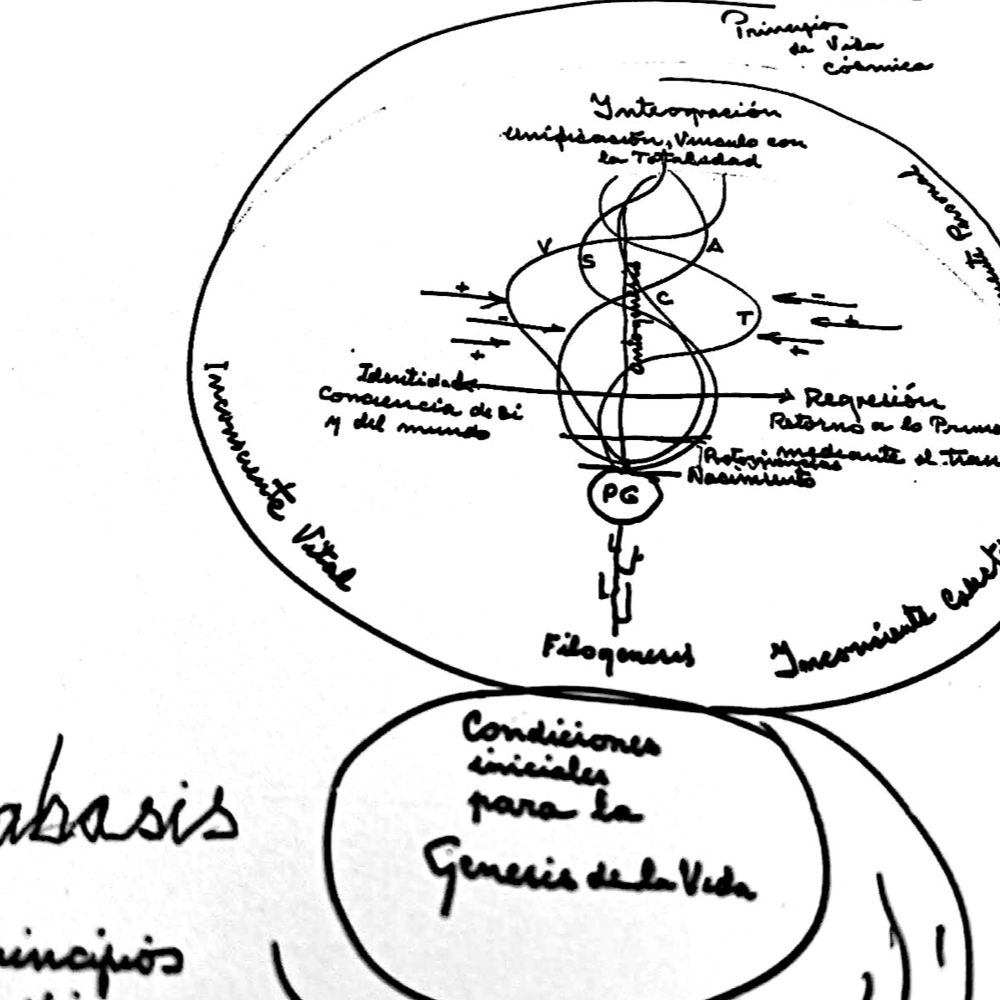 Principio
de Vida
cósmica
Integración
Unificación, Vinculo con
la Totalidad
V
S
A
C
T
Ontogenesis
+
-
+
-
+
+
Identidad
Conciencia de si
y del mundo
Regresión
Retorno a lo
mediante el
Protovivencias
Nasimiento
PG
Inconsciente Vital
Filogenesis
Condiciones
iniciales
para la
Genesis de la Vida
abasis
rincipios